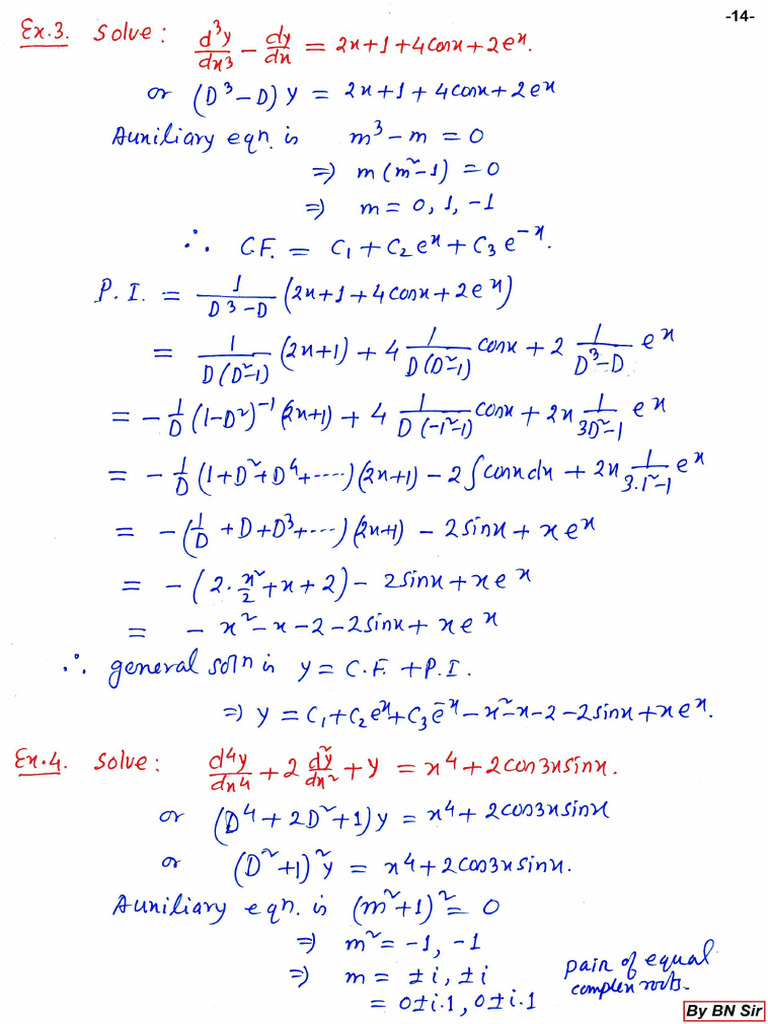 -14-
Ex.3. Solve: d³y/dx³ - dy/dx = 2x+1+4cosx+2eˣ.
or (D³-D)y = 2x+1+4cosx+2eˣ
Auxiliary eqn. is m³-m = 0
⇒ m(m²-1) = 0
⇒ m = 0, 1, -1
∴ C.F. = C₁+C₂eˣ+C₃e⁻ˣ.
P.I. = 1/(D³-D) (2x+1+4cosx+2eˣ)
= 1/(D(D²-1)) (2x+1) + 4 1/(D(D²-1)) cosx + 2 1/(D³-D) eˣ
= -1/D (1-D²)⁻¹ (2x+1) + 4 1/(D(-1²-1)) cosx + 2x 1/(3D²-1) eˣ
= -1/D (1+D²+D⁴+----)(2x+1) - 2∫cosxdx + 2x 1/(3.1²-1) eˣ
= -(1/D +D+D³+---)(2x+1) - 2sinx + xeˣ
= -(2.x²/2+x+2) - 2sinx+xeˣ
= -x²-x-2-2sinx+xeˣ
∴ general soln is y = C.F. +P.I.
⇒ y = C₁+C₂eˣ+C₃e⁻ˣ-x²-x-2-2sinx+xeˣ.
Ex.4. Solve: d⁴y/dx⁴ + 2 d²y/dx² + y = x⁴+2cos3xsinx.
or (D⁴+2D²+1)y = x⁴+2cos3xsinx
or (D²+1)²y = x⁴+2cos3xsinx.
Auxiliary eqn. is (m²+1)² = 0
⇒ m² = -1, -1
⇒ m = ±i, ±i
= 0±i.1, 0±i.1
pair of equal
complex roots.
By BN Sir